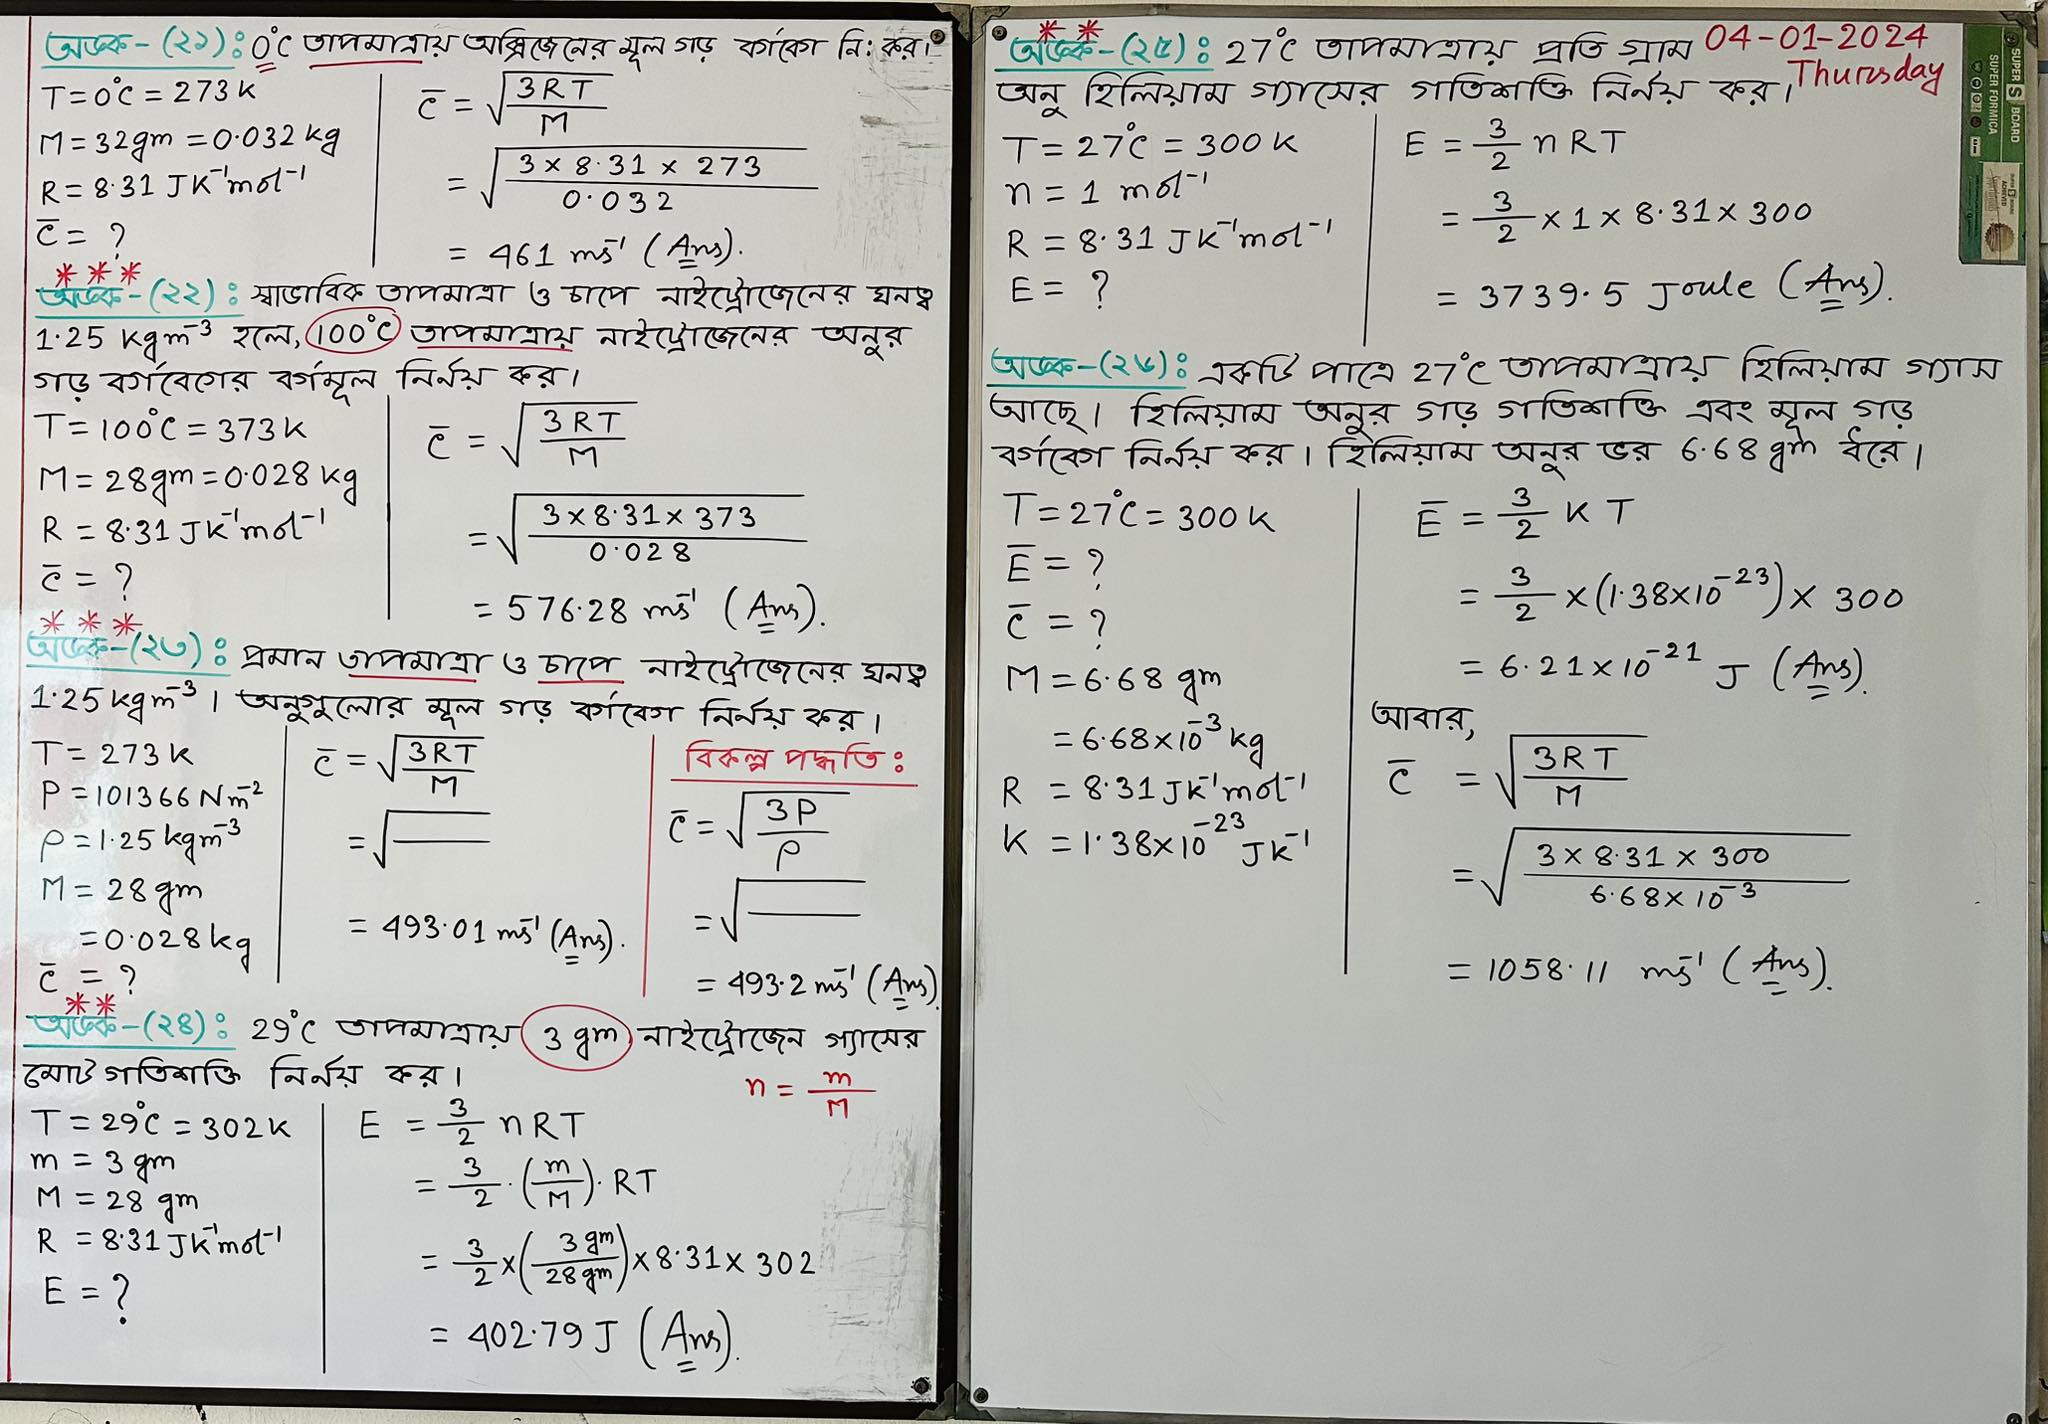 অংক-(২১): 0°C তাপমাত্রায় অক্সিজেনের মূল গড় বর্গবেগ নি: কর।
T = 0°C = 273 K
M = 32 gm = 0.032 kg
R = 8.31 JK⁻¹mol⁻¹
c̅ = ?
c̅ = √(3RT/M)
= √(3 × 8.31 × 273 / 0.032)
= 461 ms⁻¹ (Ans).
*** অংক-(২২): স্বাভাবিক তাপমাত্রা ও চাপে নাইট্রোজেনের ঘনত্ব
1.25 kgm⁻³ হলে, 100°C তাপমাত্রায় নাইট্রোজেনের অনুর
গড় বর্গবেগের বর্গমূল নির্নয় কর।
T = 100°C = 373 K
M = 28 gm = 0.028 kg
R = 8.31 JK⁻¹mol⁻¹
c̅ = ?
c̅ = √(3RT/M)
= √(3 × 8.31 × 373 / 0.028)
= 576.28 ms⁻¹ (Ans).
*** অংক-(২৩): প্রমান তাপমাত্রা ও চাপে নাইট্রোজেনের ঘনত্ব
1.25 kgm⁻³। অনুগুলোর মূল গড় বর্গবেগ নির্নয় কর।
T = 273 K
P = 101366 Nm⁻²
ρ = 1.25 kgm⁻³
M = 28 gm
= 0.028 kg
c̅ = ?
c̅ = √(3RT/M)
= √
= 493.01 ms⁻¹ (Ans).
বিকল্প পদ্ধতি:
c̅ = √(3P/ρ)
= √
= 493.2 ms⁻¹ (Ans).
** অংক-(২৪): 29°C তাপমাত্রায় 3 gm নাইট্রোজেন গ্যাসের
মোট গতিশক্তি নির্নয় কর।
n = m/M
T = 29°C = 302 K
m = 3 gm
M = 28 gm
R = 8.31 JK⁻¹mol⁻¹
E = ?
E = 3/2 nRT
= 3/2 · (m/M) · RT
= 3/2 × (3 gm/28 gm) × 8.31 × 302
= 402.79 J (Ans).
04-01-2024
Thursday
** অংক-(২৫): 27°C তাপমাত্রায় প্রতি গ্রাম
অনু হিলিয়াম গ্যাসের গতিশক্তি নির্নয় কর।
T = 27°C = 300 K
n = 1 mol⁻¹
R = 8.31 JK⁻¹mol⁻¹
E = ?
E = 3/2 nRT
= 3/2 × 1 × 8.31 × 300
= 3739.5 Joule (Ans).
অংক-(২৬): একটি পাত্রে 27°C তাপমাত্রায় হিলিয়াম গ্যাস
আছে। হিলিয়াম অনুর গড় গতিশক্তি এবং মূল গড়
বর্গবেগ নির্নয় কর। হিলিয়াম অনুর ভর 6.68 gm ধরে।
T = 27°C = 300 K
E̅ = ?
c̅ = ?
M = 6.68 gm
= 6.68×10⁻³ kg
R = 8.31 JK⁻¹mol⁻¹
K = 1.38×10⁻²³ JK⁻¹
E̅ = 3/2 KT
= 3/2 × (1.38×10⁻²³) × 300
= 6.21×10⁻²¹ J (Ans).
আবার,
c̅ = √(3RT/M)
= √(3 × 8.31 × 300 / 6.68×10⁻³)
= 1058.11 ms⁻¹ (Ans).
SUPER S BOARD
SUPER FORMICA